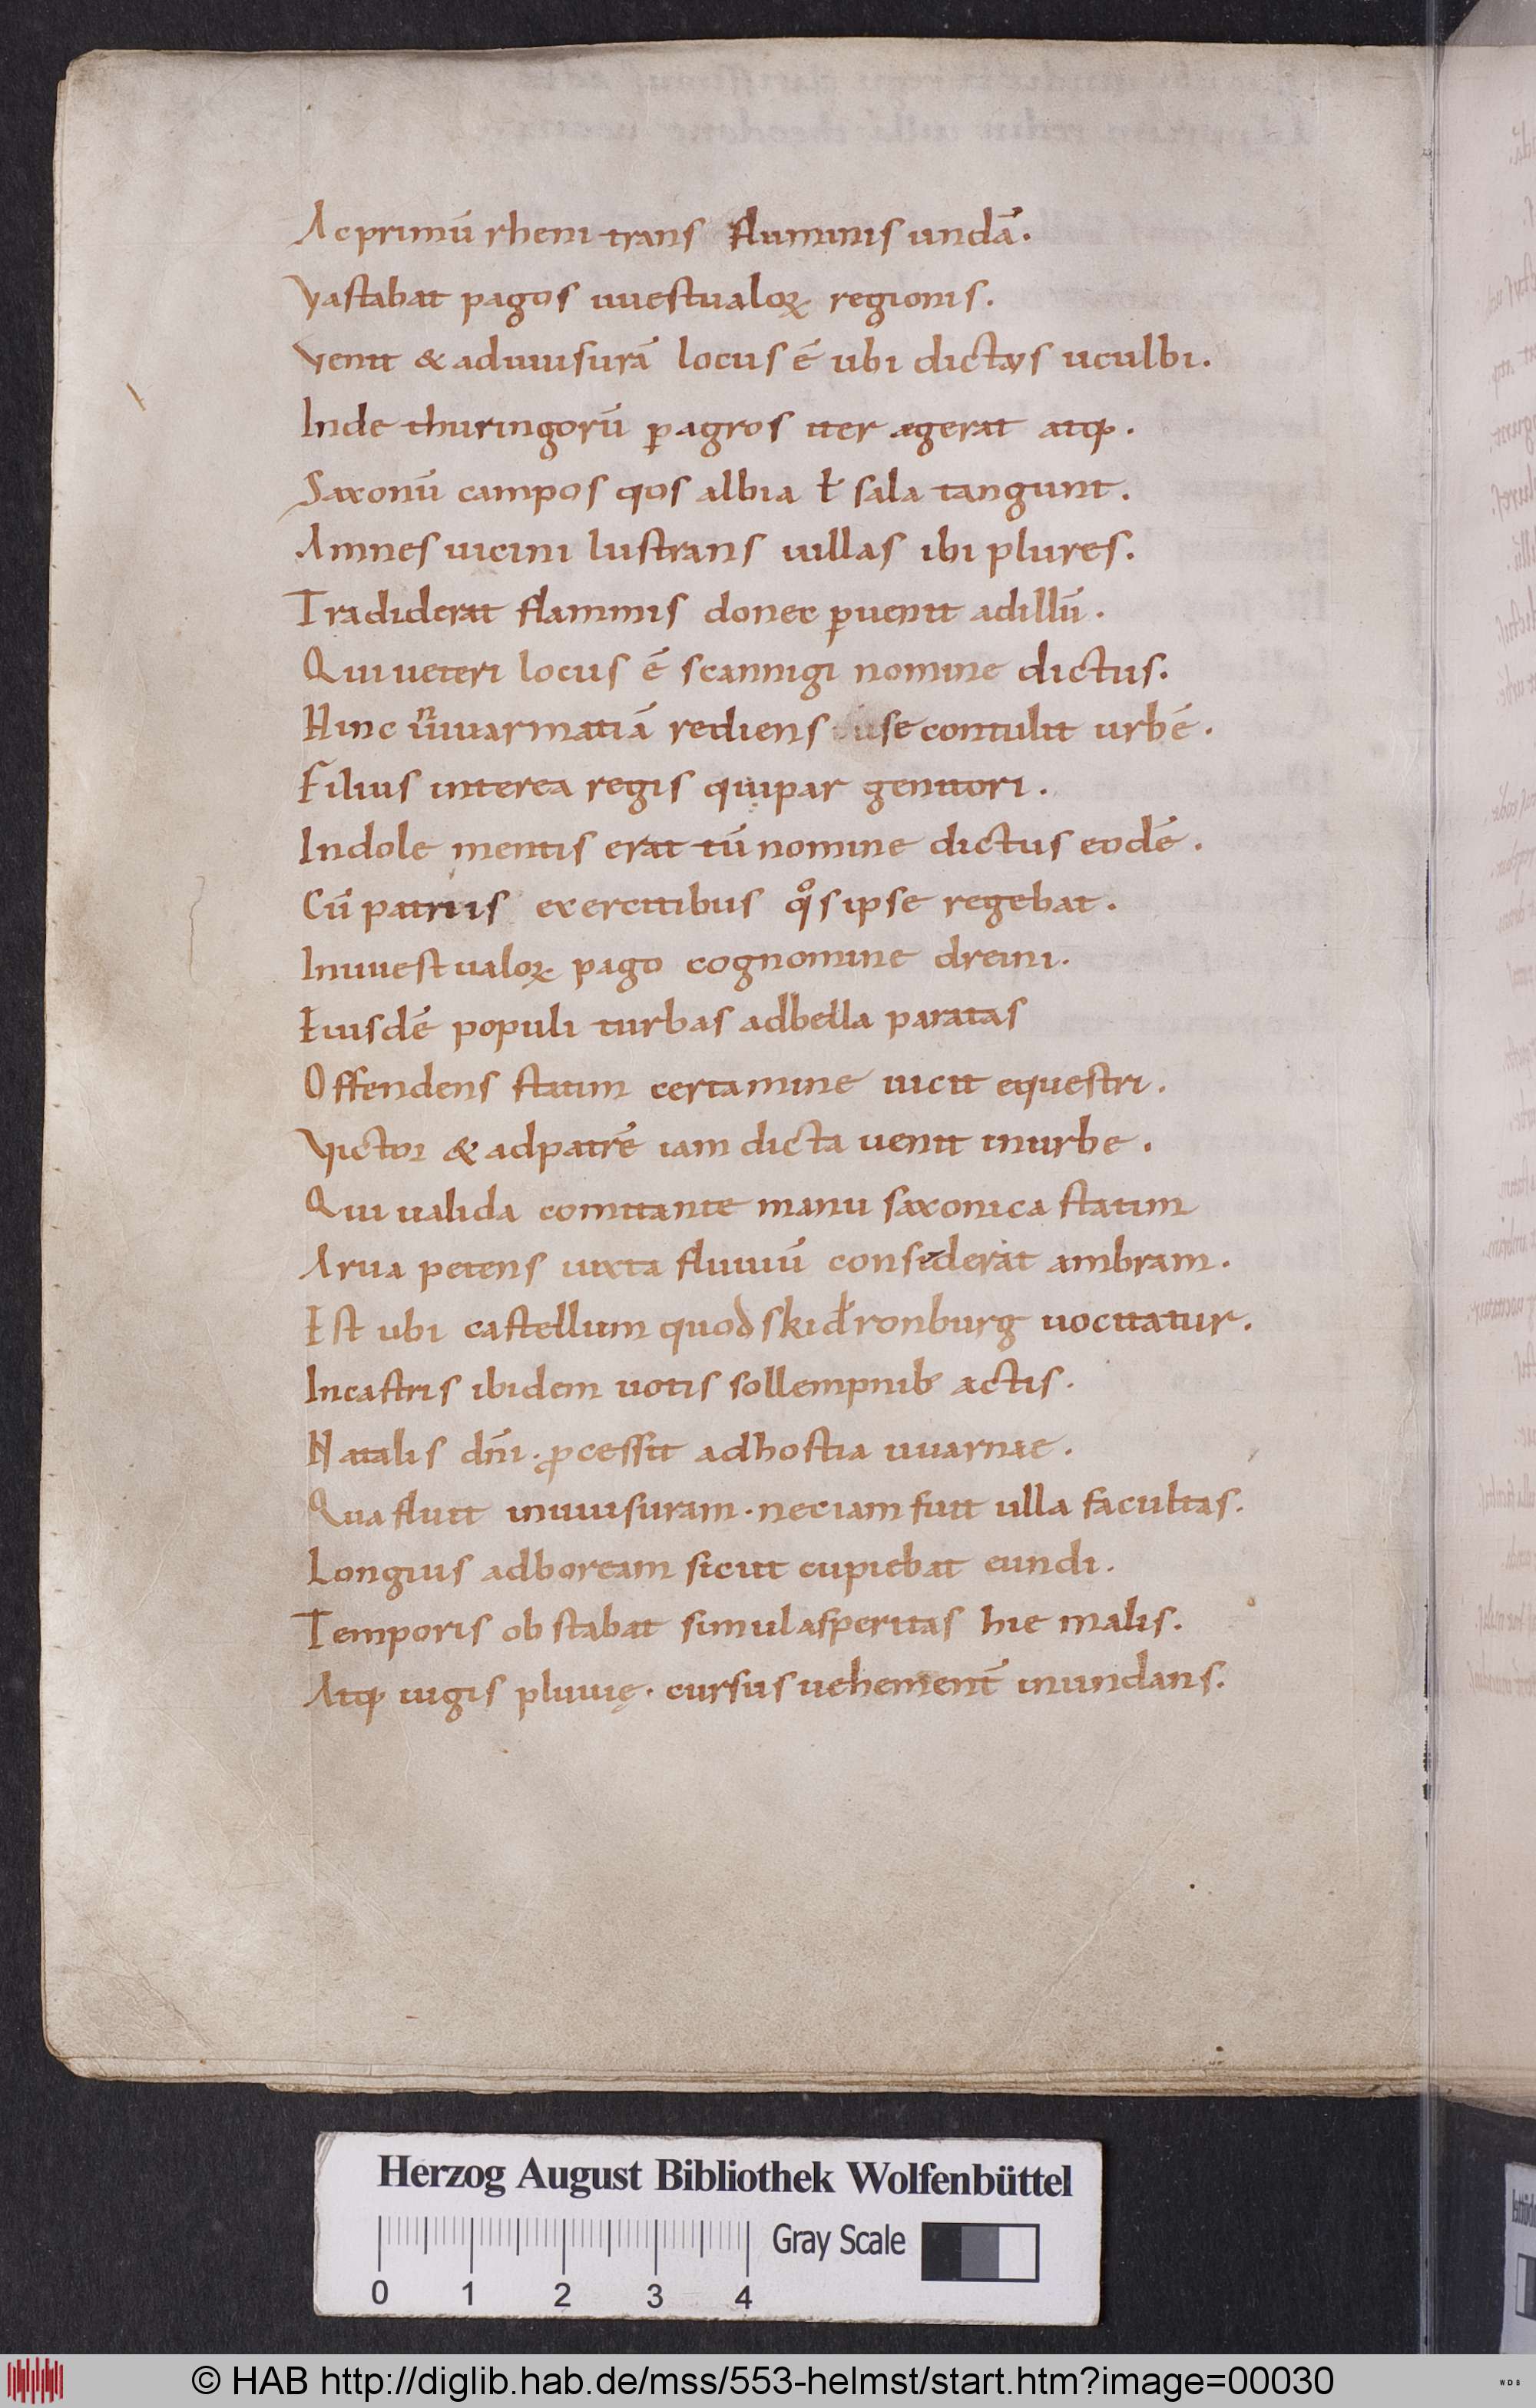 Ac primū rheni trans fluminis undā.
Vastabat pagos uuestualoꝝ regionis.
Venit & aduuisurā locus ē ubi dictus uculbi.
Inde thuringorū ꝑ agros iter agerat atq;.
Saxonū campos qos albia ł sala tangunt.
Amnes uicini lustrans uillas ibi plures.
Tradiderat flammis donec ꝑuenit adillū.
Qui ueteri locus ē scannigi nomine dictus.
Filius interea regis qui par genitori.
Indole mentis erat tū nomine dictus eodē.
Cū patriis exercitibus qͦs ipse regebat.
Inuuestualoꝝ pago cognomine dreini.
Eiusdē populi turbas adbella paratas
Offendens statim certamine uicit equestri.
Victor & adpatrē iam dicta uenit inurbe.
Qui ualida comitante manu saxonica statim
Arua petens iuxta fluuiū considerat ambram.
Est ubi castellum quod skidronburg uocitatur.
Incastris ibidem uotis sollempnib; actis.
Natalis dn̄i. ꝓcessit adhostia uuarnae.
Qua fluit inuuisuram. nec iam fuit ulla facultas.
Longius adboream sicut cupiebat eundi.
Temporis obstabat simul asperitas hiemalis.
Atq; iugis pluuię. cursus uehement̄ inundans.
Herzog August Bibliothek Wolfenbüttel
Gray Scale
0 1 2 3 4
© HAB http://diglib.hab.de/mss/553-helmst/start.htm?image=00030